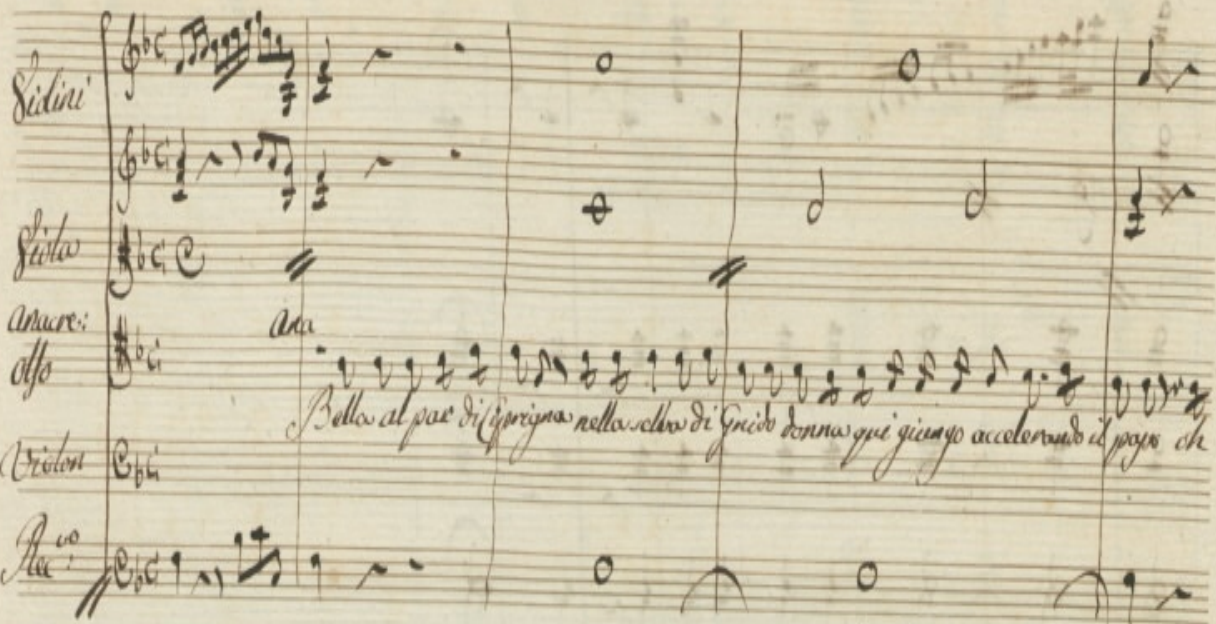 Violini
Viola
Anacre:
olfo
Ana
Bella al par di Ciprigna nella selva di Gnido donna qui giungo accelerando il passo ch
Violon
Rec.vo